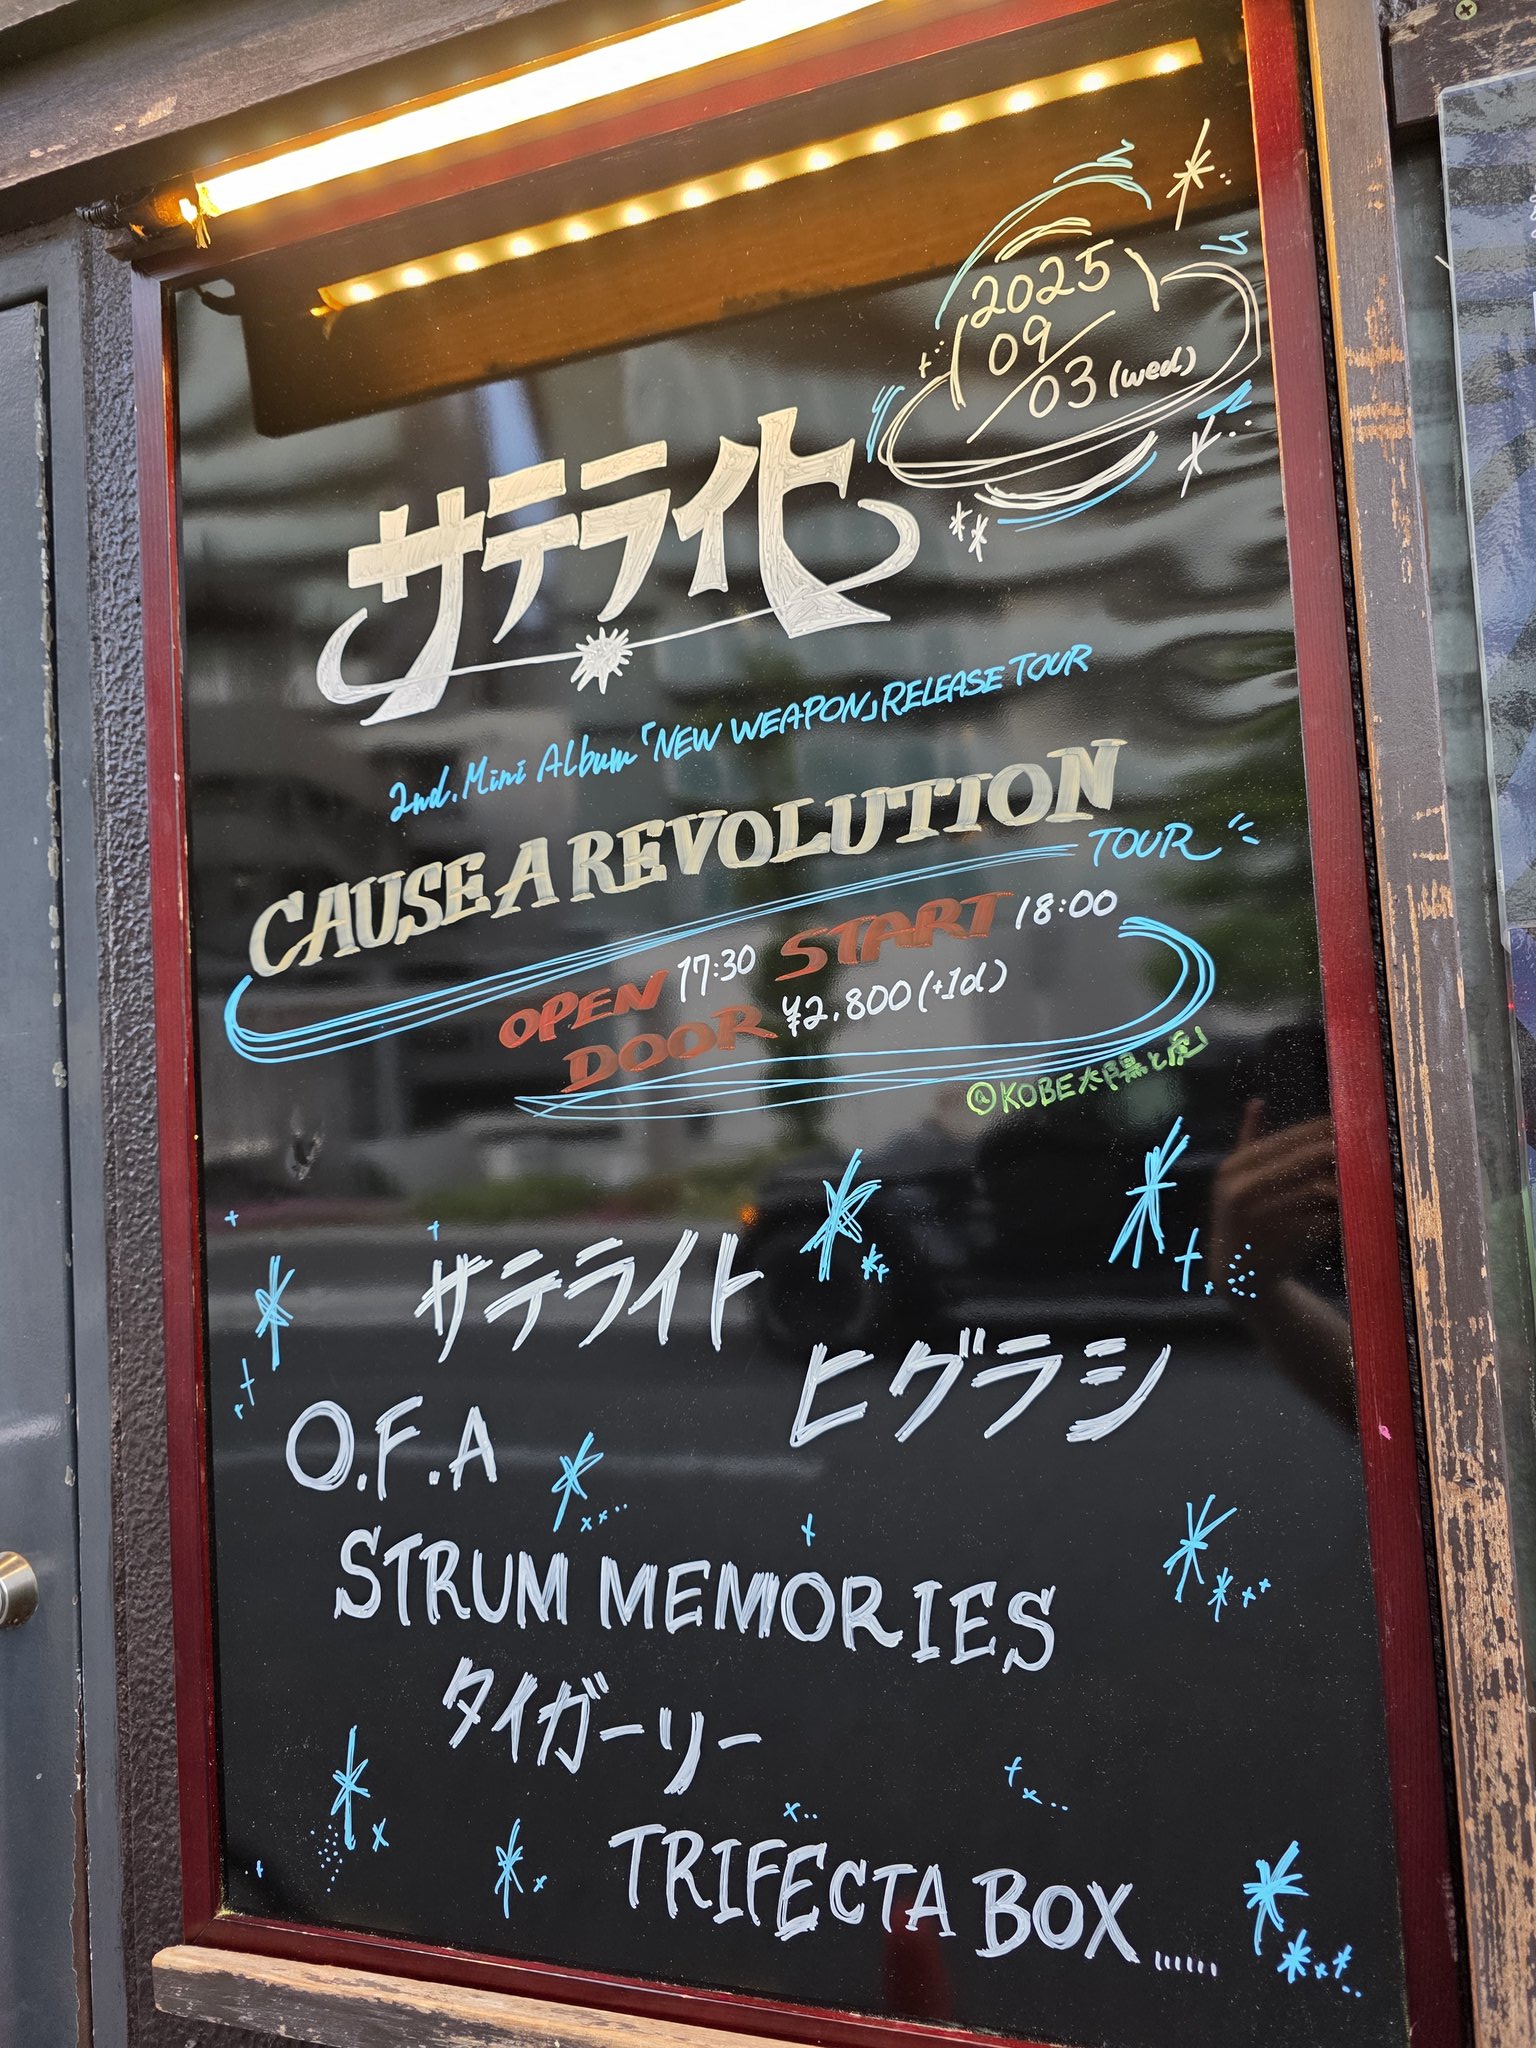 2025
09/03(wed)
サテライト
2nd.Mini Album「NEW WEAPON」RELEASE TOUR
CAUSE A REVOLUTION
TOUR
OPEN 17:30 START 18:00
DOOR ¥2,800(+1d)
@KOBE太陽と虎
サテライト
ヒグラシ
O.F.A
STRUM MEMORIES
タイガーリー
TRIFECTA BOX......